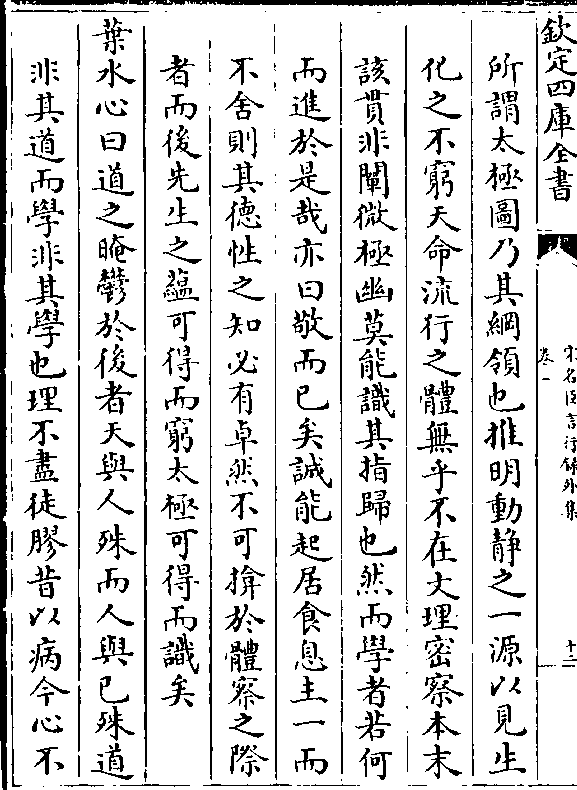 欽定四庫全書
宋名臣言行錄外集
卷一
十二
所謂太極圖乃其綱領也推明動静之一源以見生
化之不窮天命流行之體無乎不在文理密察本末
該貫非闡微極幽莫能識其指歸也然而學者若何
而進於是哉亦曰敬而已矣誠能起居食息主一而
不舍則其德性之知必有卓然不可揜於體察之際
者而後先生之蘊可得而窮太極可得而識矣
葉水心曰道之晻鬱於後者天與人殊而人與已殊道
非其道而學非其學也理不盡徒膠昔以病今心不